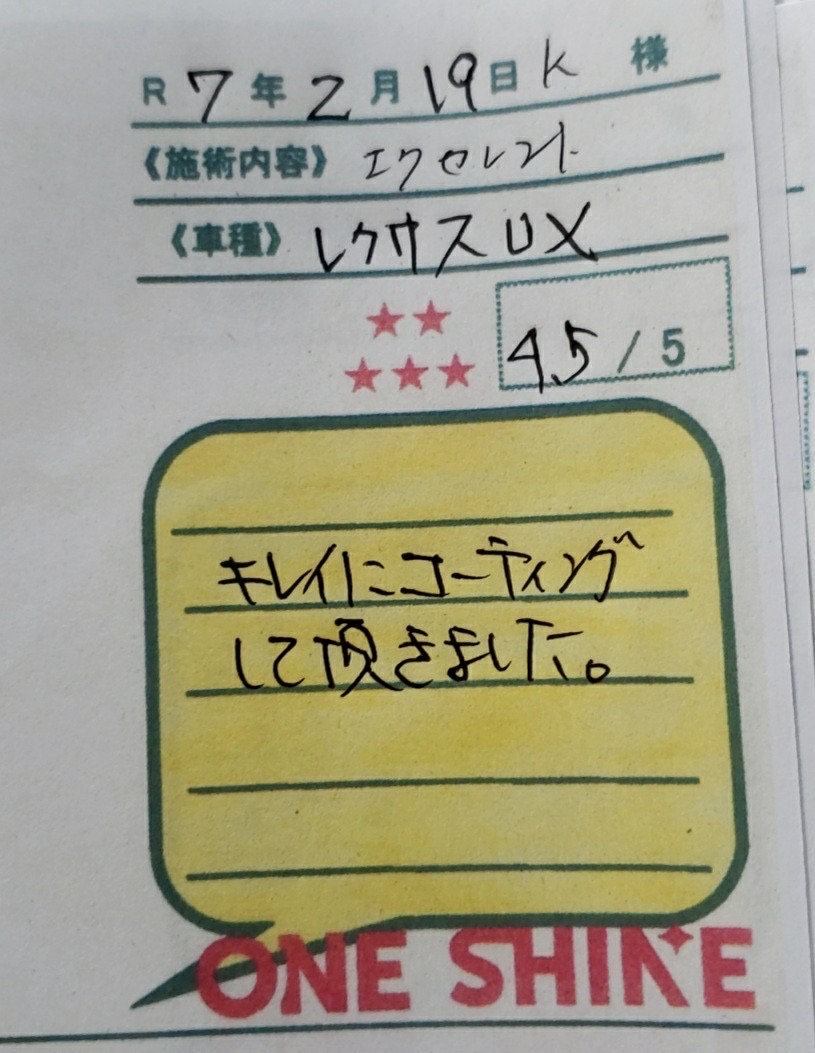 R 7年2月19日 K 様
《施術内容》 エクセレント
《車種》 レクサスUX
★★
★★★
4.5 / 5
キレイにコーティング
して頂きました。
ONE SHINE